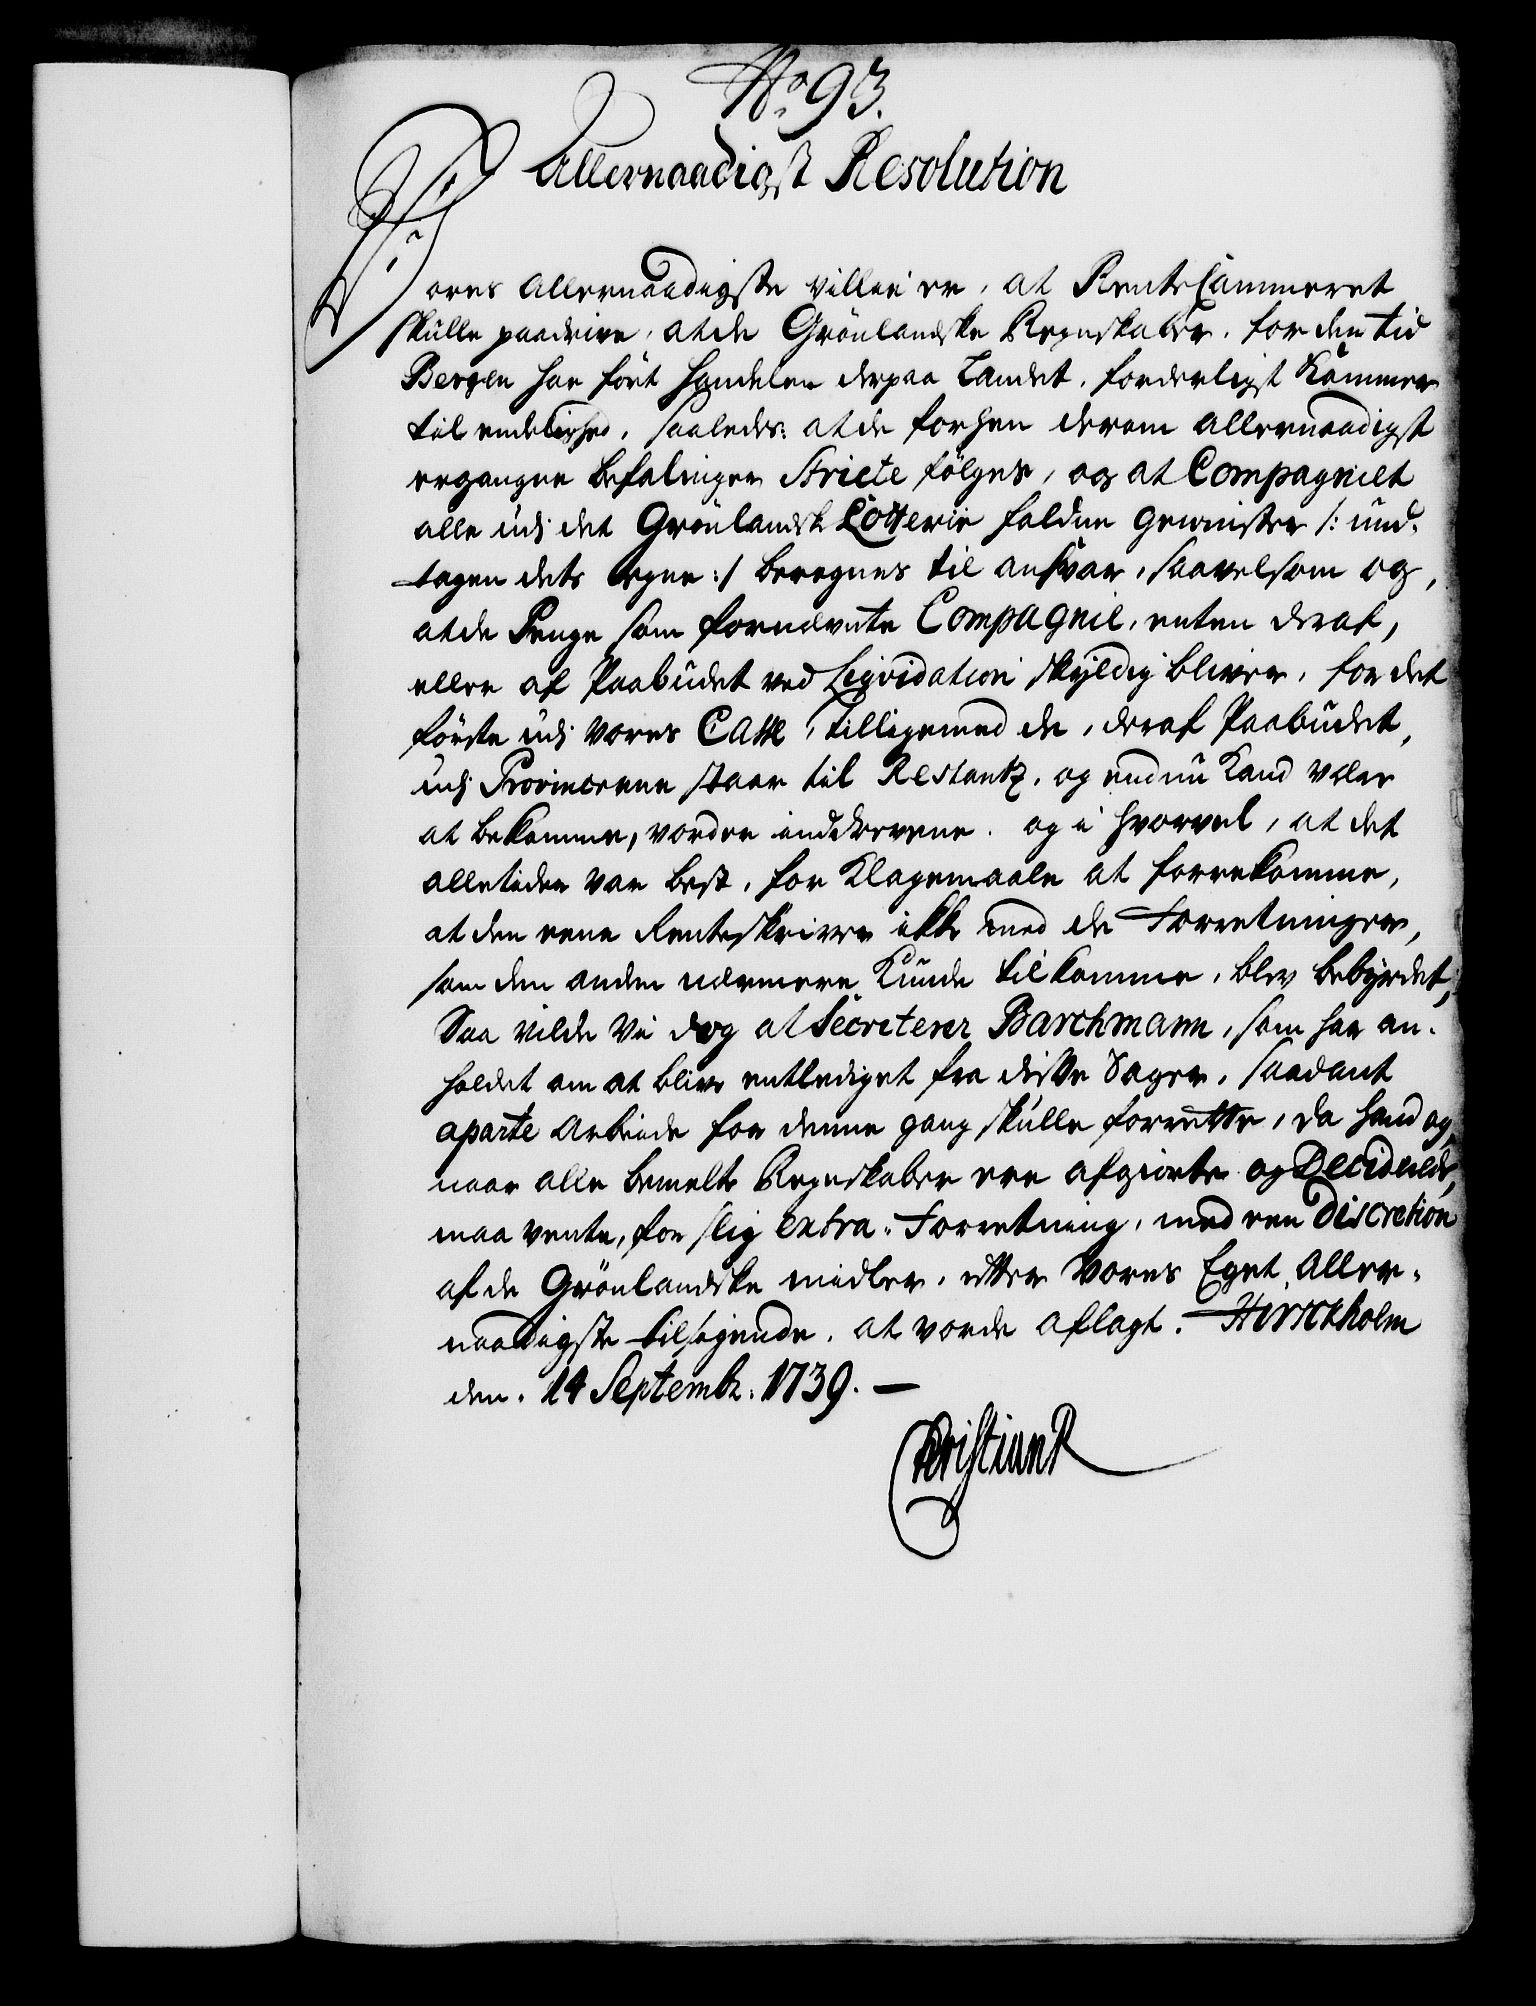 No. 93.
Allernaadigst Resolution
Vores Allernaadigste villie er, at RenteCammeret
skulle paadrive, at de Grönlandske Regnskaber, for den tid
Bergen har fört Handelen derpaa Landet, forderligst kommer
til endelighed, saaledes: at de forhen derom allernaadigst
ergangne befalinger stricte fölges, og at Compagniet
alle udj det Grönlandsk Lotterie faldne gewinster /: und-
tagen dets egne :/ beregnes til ansvar, saavelsom og,
at de Penge som fornævnte Compagnie, enten deraf,
eller af Paabudet ved Liqvidation skyldig bliver, for det
förste udj vores Casse, tilligemed de, deraf Paabudet,
udj Provincerne staar til Restantz, og endnu kand være
at bekomme, vorder inddrevene. og i hvorvel, at det
alletider var best, for Klagemaale at forrekomme,
at den eene Renteskriver ikke med de Forretninger,
som den anden nærmere kunde tilkomme, blev bebyrdet;
Saa vilde Vi dog at Secreterer Barchmann, som har an-
holdet om at blive entlediget fra disse Sager, saadant
aparte Arbeide for denne gang skulle forrette, da hand og,
naar alle bemelte Regnskaber ere afgiorte og Deciderede,
maa vente, for slig extra-Forretning, med een Discretion
af de Grönlandske midler, efter Vores Eget Aller-
naadigste tilsigende, at vorde aflagt. Hirschholm
den. 14 Septembr: 1739. —
ChristianR